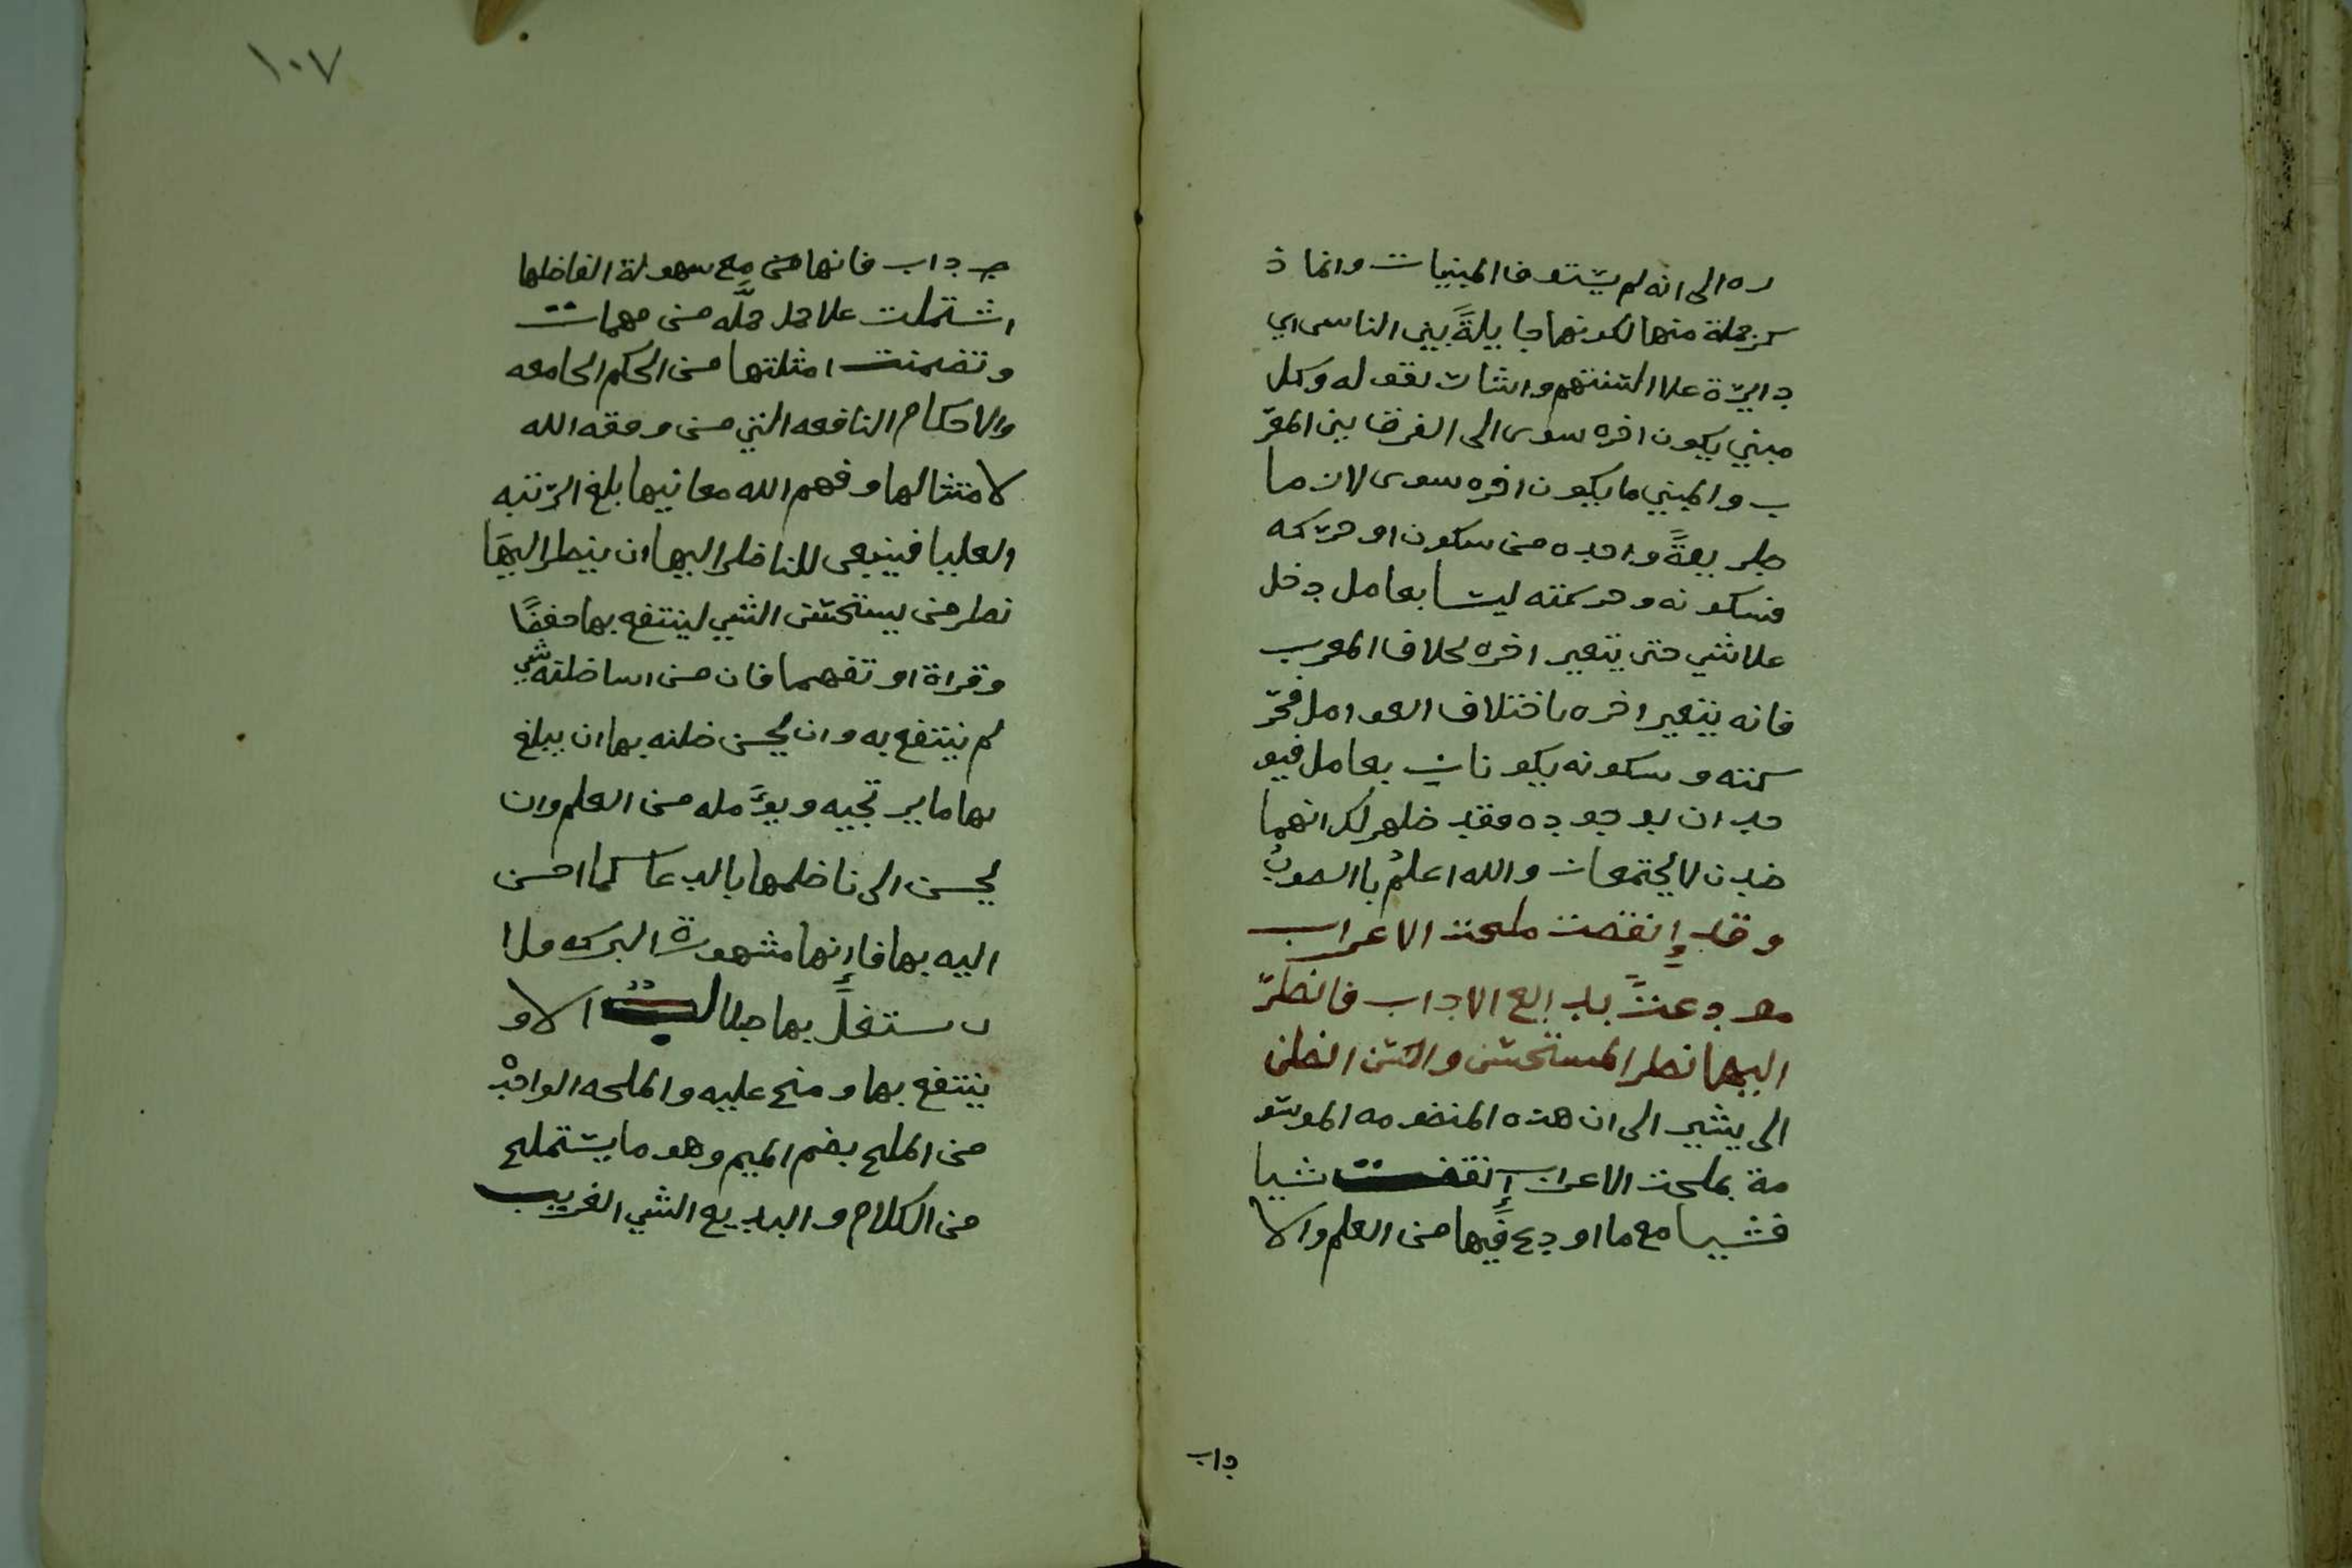 ره الى انه لم يستوف المبنيات وانما ذ
كر جملة منها لكونها جايلةً بين الناس اي
دايرة علا السنتهم واشار بقوله وكل
مبني يكون اخره سوى الى الفرق بين المعر
ب والمبني ما يكون اخره سوى لان ما
طريقةً واحده من سكون او حركه
فسكونه وحركته ليسا بعامل دخل
علا شي حتى يتغير اخره بخلاف المعرب
فانه يتغير اخره باختلاف العوامل فحر
كته وسكونه يكونان بعامل فيو
جدان بوجوده فقد ظهر لك انهما
ضدن لا يجتمعان والله اعلم باالصوب
وقد إنقضت ملحت الاعراب
مودعتً بدايع الاداب فانظر
اليها نظر المستحسن واحسن الظن
الى يشير الى ان هذه المنضومه الموسو
مة بملحت الاعراب إنقضت شيا
فشيا مع ما اودع فيها من العلم والا
داب
١٠٧
داب فانها من مع سهولة الفاظها
اشتملت علا جل جمله من مهمات
وتضمنت امثلتها من الحكم الجامعه
والاحكام النافعه التي من وفقه الله
لامتثالها وفهم الله معانيها بلغ الرتبه
العليا فينبغي للناظر اليها ان ينظر اليها
نظر من يستحسن الشي لينتفع بها حفظًا
وقراة او تفهما فان من اسا ظنه بشي
لم ينتفع به وان يحسن ظنه بها ان يبلغ
بها ما يرتجيه ويؤمله من العلم وان
يحسن الى ناظمها بالدعا كما احسن
اليه بها فاإنها مشهورة البركه ولا
ستغل بها طالب الا و
ينتفع بها ومنح عليه والملحه الواحد
من الملح بضم الميم وهو ما يستملح
من الكلام والبديع الشي الغريب